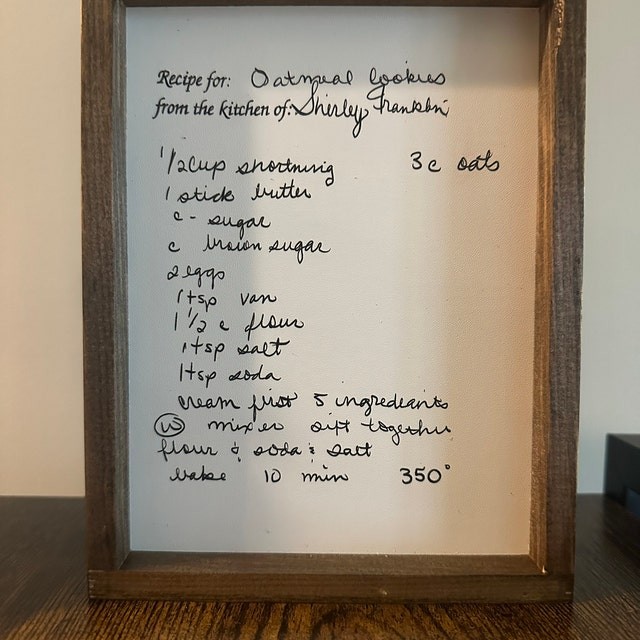 Recipe for: Oatmeal Cookies
from the kitchen of: Shirley Franklin
1/2 cup shortning 3 c oats
1 stick butter
c - sugar
c brown sugar
2 eggs
1 tsp van
1 1/2 c flour
1 tsp salt
1 tsp soda
cream first 5 ingredients
w mixer sift together
flour & soda & salt
bake 10 min 350°